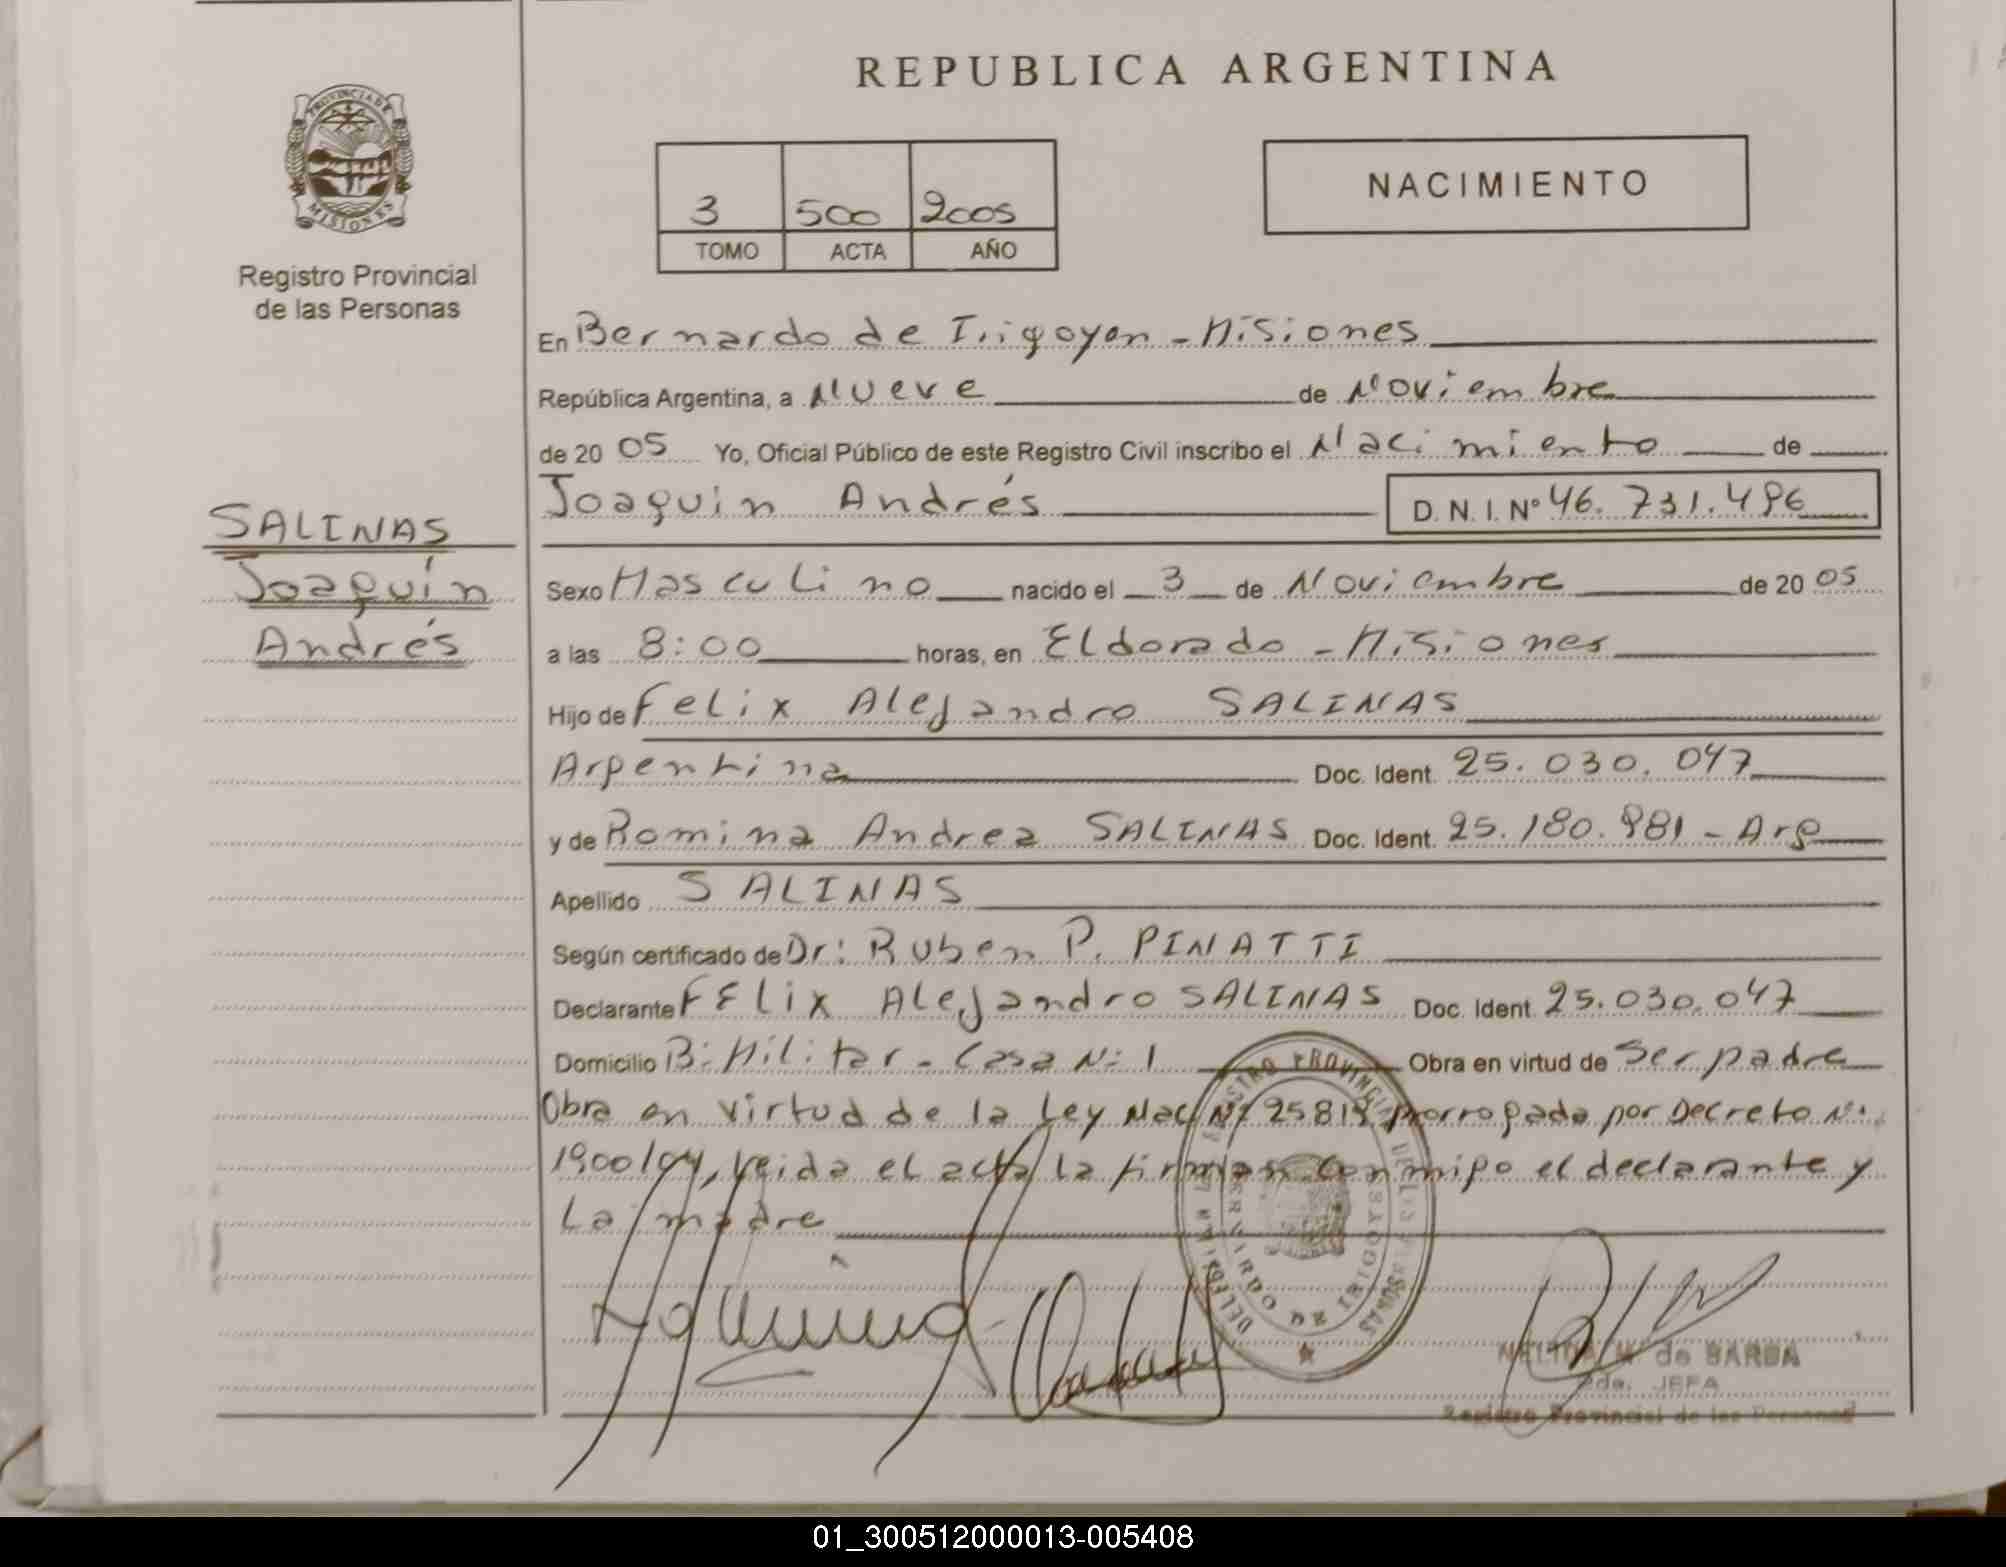 REPUBLICA ARGENTINA
PROVINCIA DE
MISIONES
Registro Provincial
de las Personas
3 500 2005
TOMO ACTA AÑO
NACIMIENTO
En Bernardo de Irigoyen - Misiones
República Argentina, a Nueve de Noviembre
de 20 05 Yo, Oficial Público de este Registro Civil inscribo el Nacimiento de
Joaquin Andrés D.N.I. Nº 46.731.496
SALINAS
Joaquín
Andrés
Sexo Masculino nacido el 3 de Noviembre de 20 05
a las 8:00 horas, en Eldorado - Misiones
Hijo de Felix Alejandro SALINAS
Argentina Doc. Ident. 25.030.047
y de Romina Andrea SALINAS Doc. Ident. 25.180.981 - Arg
Apellido SALINAS
Según certificado de Dr: Ruben P. PINATTI
Declarante FELix Alejandro SALINAS Doc. Ident. 25.030.047
Domicilio B: Militar - Casa N: 1 Obra en virtud de Ser padre
Obra en virtud de la Ley Nac N: 25819 prorrogada por Decreto N:
1900/04, leida el acta la firman conmigo el declarante y
La madre
REGISTRO PROVINCIAL DE LAS PERSONAS
BERNARDO DE IRIGOYEN
NELIDA M. de BARDA
2da. JEFA
Registro Provincial de las Personas
01_300512000013-005408